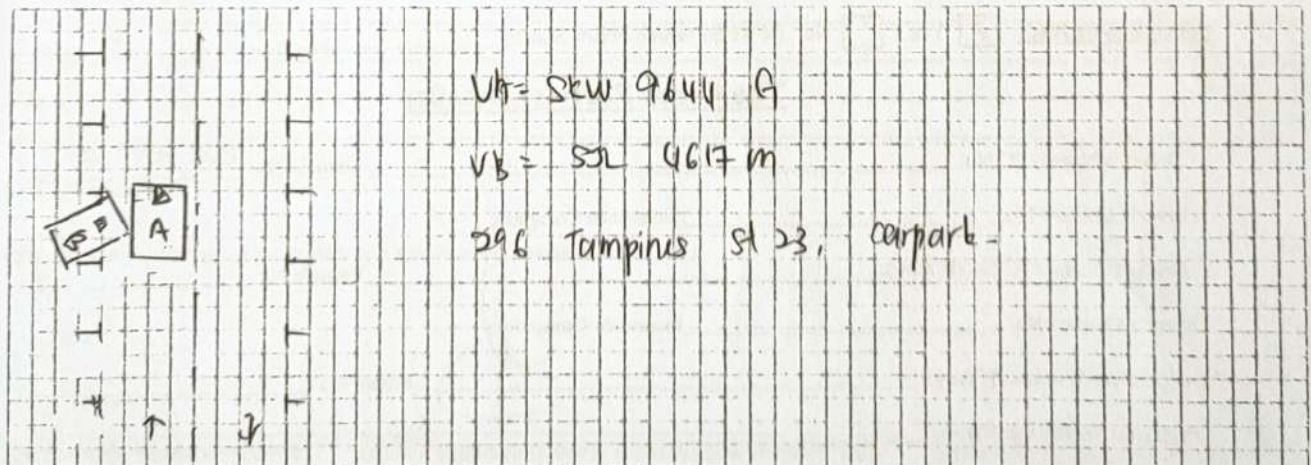 VA = SKW 9644 G
VB = 4617 M
296 Tampines St 23, carpark -
B
A
B